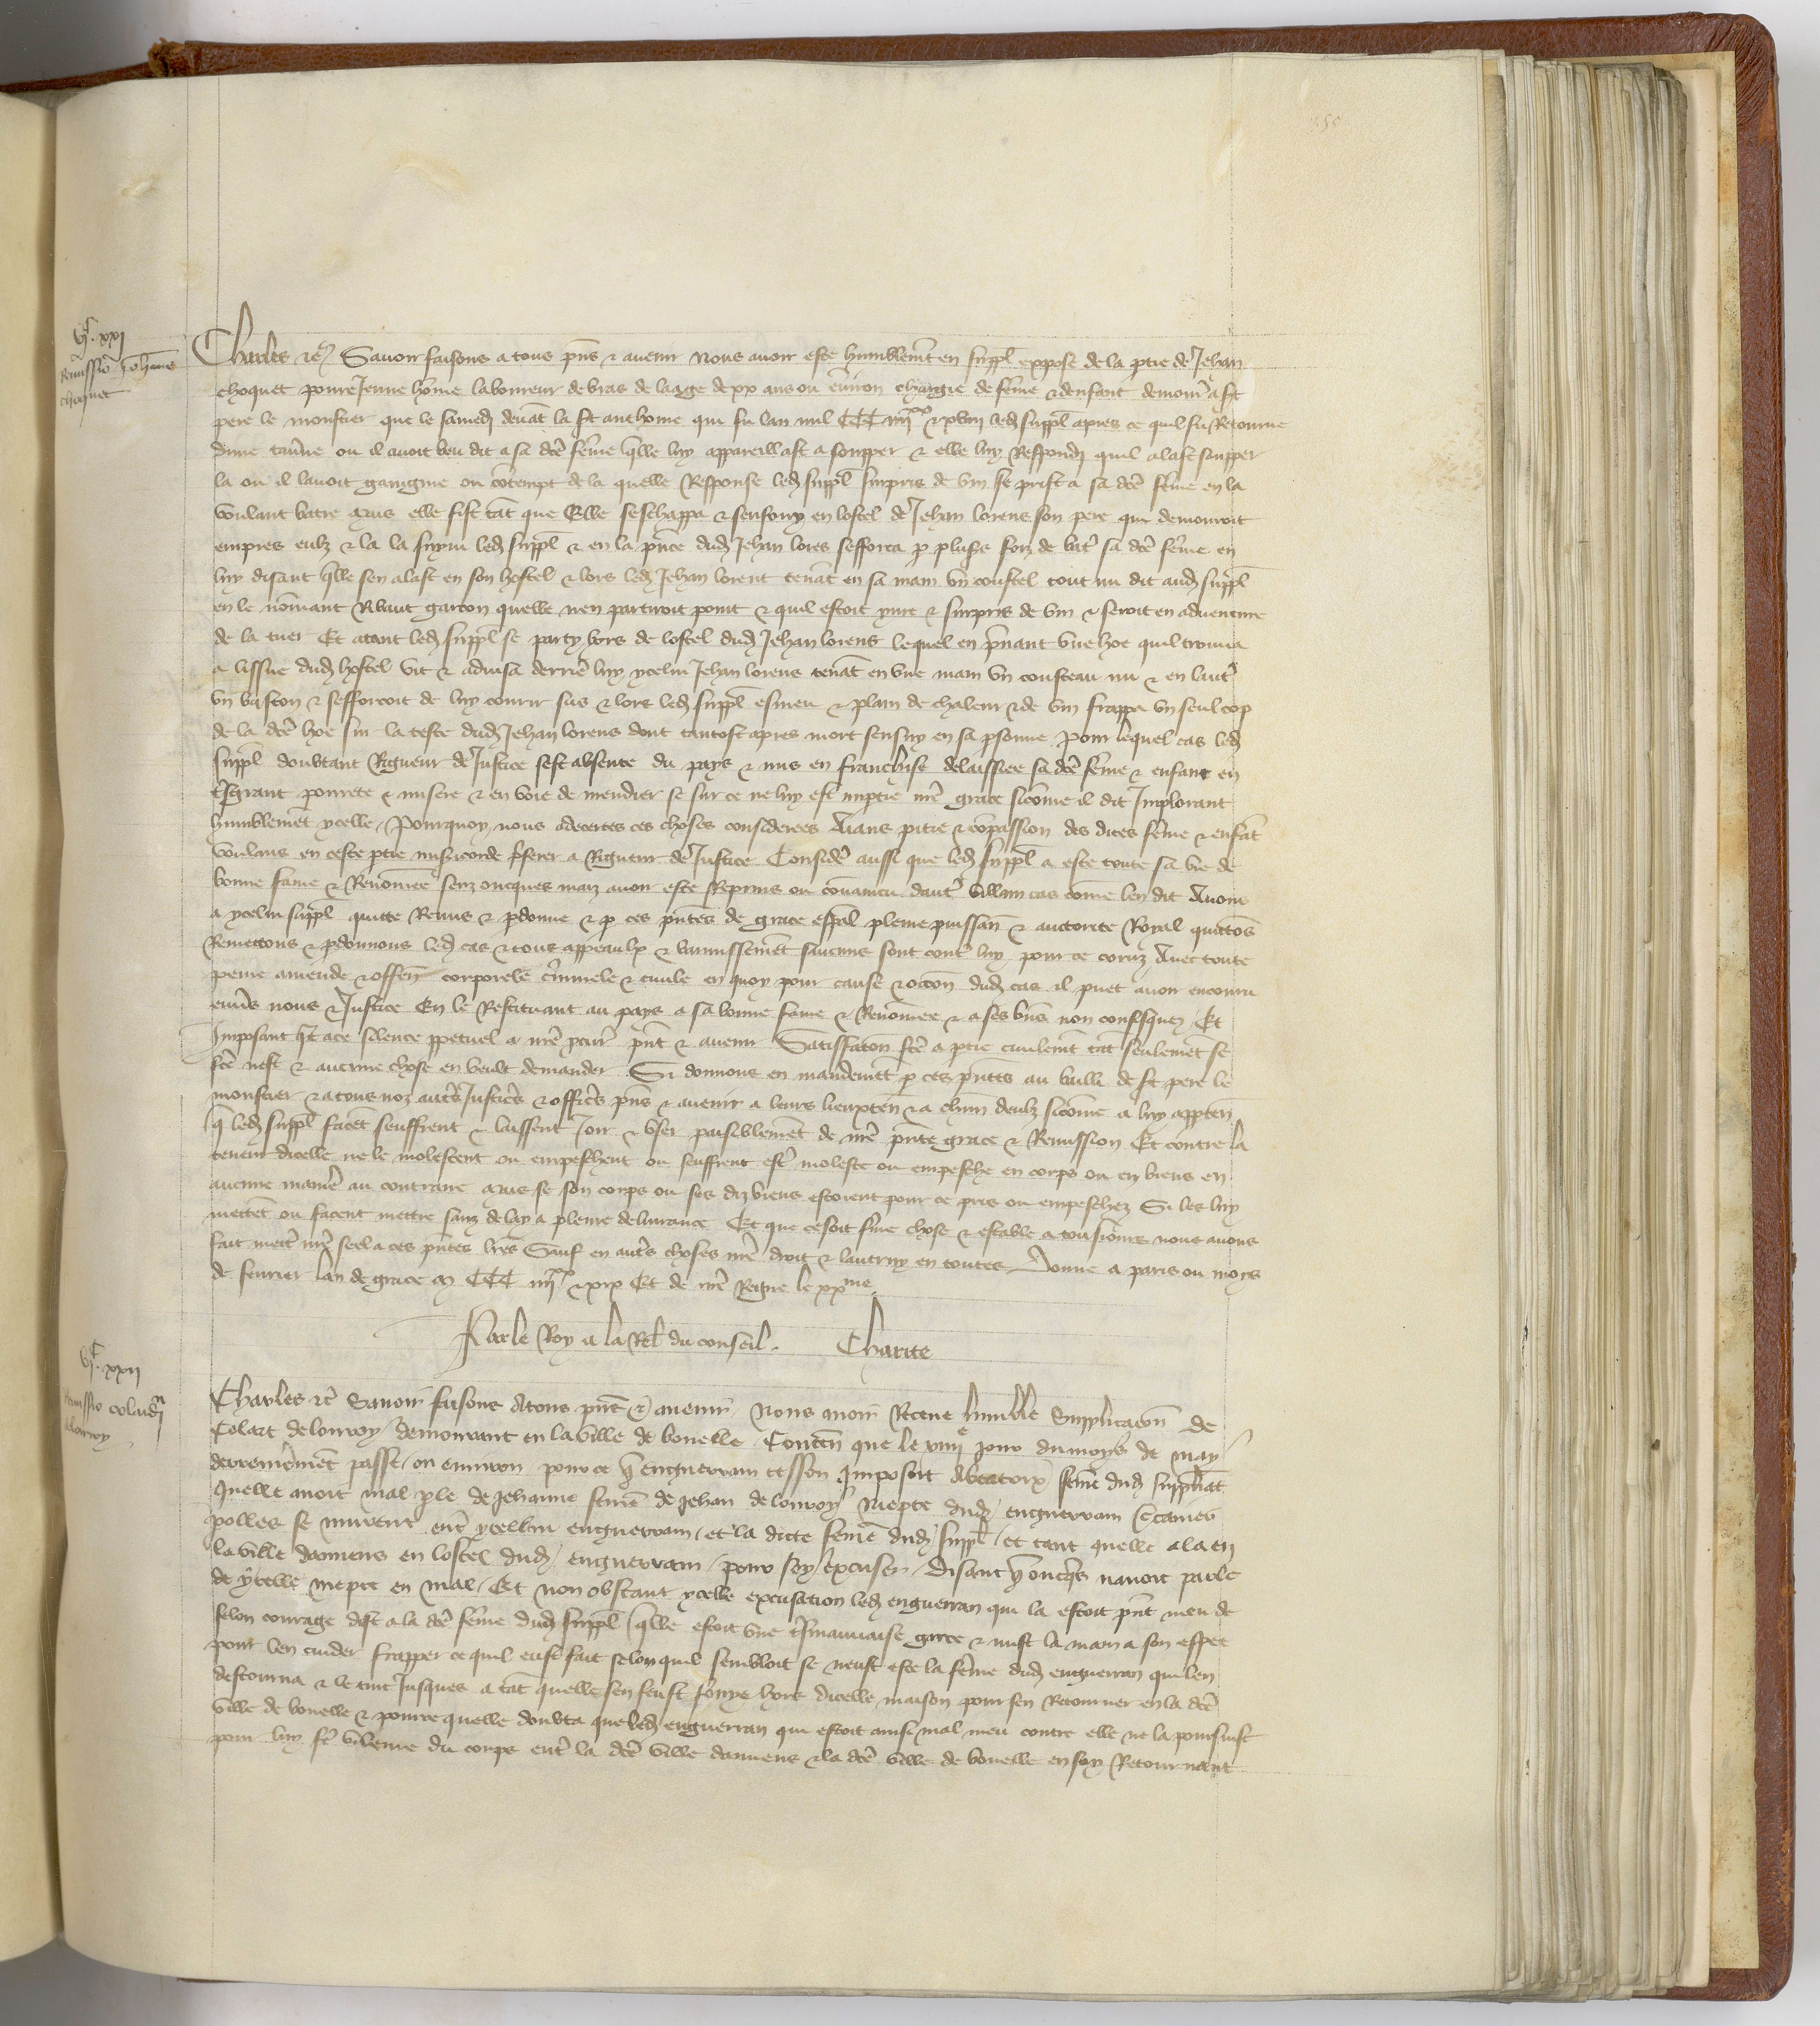 350
VIc. XXI
Remissio Johannis
choquet
Charles etc. Savoir faisons a tous pns & avenir nous avoir este humblemt en suppl expose de la ptie de Jehan
choquet povre Jeune home laboureur de bras de laage de xx ans ou environ chargie de feme & denfant demour a st
pere le monstier que le samedi devat la st anthoine qui fu lan mil CCC IIIIxx & XVIII led suppl apres ce quil fu Retourne
dune taverne ou il avoit beu dit a sa dce feme qlle luy appareillast a soupper & elle luy Respondi quil alast soupper
la ou il lavoit gaingnie ou cotempt de la quelle Response led suppl surpris de vin se prist a sa dce feme en la
voulant batre mais elle fist tat que Elle seschappa & senfouy en lostel de Jehan lorens son pere qui demouroit
empres eulx & la la suyvi led suppl & en la pnce dud Jehan lores sefforca p plusrs foiz de batre sa dce feme en
luy disant qlle sen alast en son hostel & lors led Jehan lorent tenat en sa main un coustel tout nu dit aud suppl
en le nomant Ribaut garcon quelle nen partiroit point & quil estoit yvre & surpris de vin & seroit en adventure
de la tuer Et atant led suppl se party hors de lostel dud Jehan lorens lequel en prnant une hoe quil trouva
a lissue dud hostel vit & advisa derrie luy ycelui Jehan lorens tenat en une main un cousteau nu & en lautr
un baston & sefforcoit de luy courir sus & lors led suppl esmeu & plain de chaleur & de vin frappa un seul cop
de la dce hoe sur la teste dud Jehan lorens dont tantost apres mort sensuy en sa psonne Pour lequel cas led
suppl doubtant Rigueur de Justice sest absente du pays & mis en franchise delaissiee sa dce feme & enfant en
tsgrant povrete & misere & en voie de mendier se sur ce ne luy est imptie nre grace sicome il dit Implorant
humblemet ycelle / Pourquoy nous adecertes ces choses considerees Aians pitie & compassion des dites feme & enfat
voulans en ceste ptie misericorde prferer a Rigueur de Justice Conside aussi que led suppl a este toute sa vie de
bonne fame & Renomee senz oncques mais avoir este Reprins ou covaincu dautr villain cas come len dit Avons
a ycelui suppl quitte Remis & pdonne & p ces pntes de grace espal pleine puissan & auctorite Royal quittos
Remettons & pdonnons led cas & tous appeaulx & bannissemet saucuns sont contr luy pour ce coruz Avec toute
peine amende & offen corporele crimnele & civile en quoy pour cause & occon dud cas il puet avoir encouru
envrs nous & Justice En le Restituant au pays a sa bonne fame & Renomee & a ses bns non confisquez Et
Imposant qt ace silence ppetuel a nre pcur pnt & avenir Satisfaton fce a ptie civilemt tat seulemet se
fce nest & aucune chose en veult demander Si donnons en mandemet p ces pntes au bailli de st pere le
monstier & a tous noz autrs Justicrs & officrs pns & avenir a leurs lieuxten & a chun deulx sicome a luy apptien
q led suppl facet seuffrent & laissent Joir & user paisiblemet de nre pnte grace & Remission Et contre la
teneur dicelle ne le molestent ou empeschent ou seuffrent estr moleste ou empeschie en corps ou en biens en
aucune manie au contraire mais se son corps ou ses diz biens estoient pour ce pris ou empeschez Si les luy
mettet ou facent mettre sanz delay a pleine delivrance Et que ce soit ferme chose & estable a tousiours nous avons
fait mettr nre seel a ces pntes lres Sauf en autrs choses nre droit & lautruy en toutes Donne a paris ou moys
de fevrier lan de grace M CCC IIIIxx & XIX Et de nre Regne le XXme.
Par le Roy a la Rel du conseil. Charite
VIc. XXII
Remissio colardi
de lonroy
Charles etc Savoir faisons Atous pnt & avenir Nous avoir Receue humble Supplicacon de
Colart de lonroy demourant en la ville de bonelle Conten que le XIIIIe jour du moys de may
derrenieremet passe / ou environ pour ce q enguerram tesson Imposoit Abeatorix feme dud suppliat
Quelle avoit mal ple de Jehanne feme de Jehan de lonroy niepce dud enguerram Certaines
polles se murent entr ycellui enguerram / et la dicte feme dud suppl / et tant quelle ala en
la ville damiens en lostel dud enguerram / pour soy excuser / disant q oncqs navoit parle
de ycelle niepce en mal / Et non obstant ycelle excusation led enguerran qui la estoit pnt meu de
felon courage dist a la dce feme dud suppl qlle estoit une tsmauvaise garce & mist la main a son espee
pour len cuider frapper ce quil eust fait selon quil sembloit se neust este la feme dud enguerran qui len
destourna & le tint Jusques a tat quelle sen feust fouye hors dicelle maison pour sen Retourner en la dce
ville de bonelle & pource quelle doubta que led enguerran qui estoit ainsi mal meu contre elle ne la poursuist
pour luy fe villenie du corps entr la dce ville damiens & la dce ville de bonelle en soy Retournant